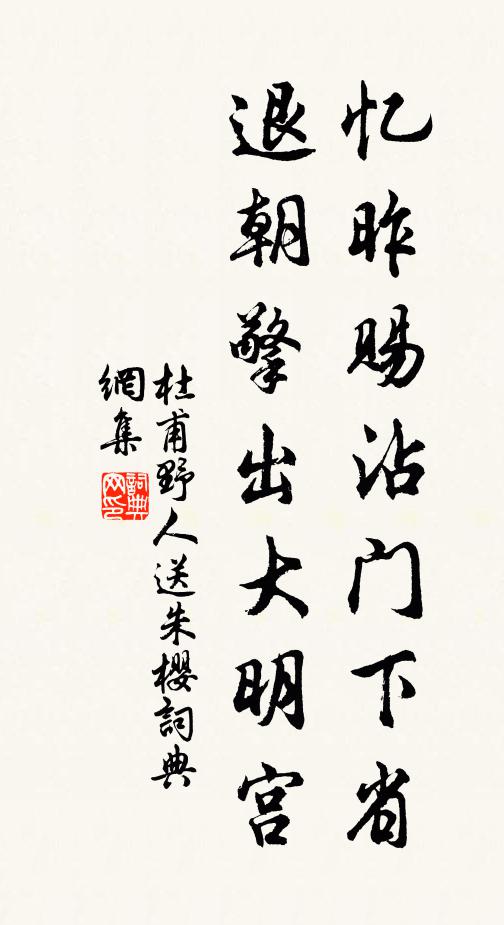 忆昨赐沾门下省
退朝擎出大明宫
杜甫野人送朱樱詞典
網集
詞典网印